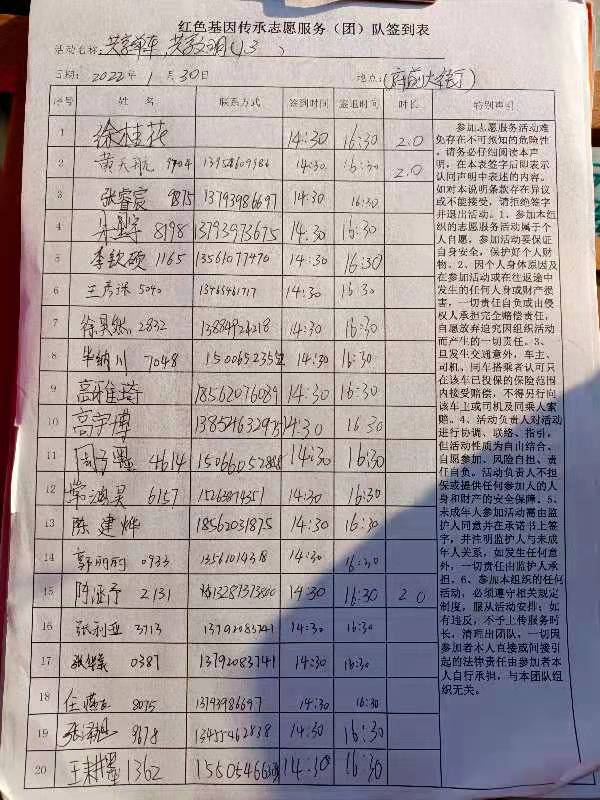 红色基因传承志愿服务（团）队签到表
活动名称：共享单车，共享文明（1.3）
日期：2022年1月30日 地点：（府前大街）
序号 姓名 联系方式 签到时间 签退时间 时长 特别声明
1 徐桂花 14:30 16:30 2.0
2 黄天航 9704 14:30 16:30 2.0
3 张睿宸 9875 13793986697 14:30 16:30
4 8198 13793973675 14:30 16:30
5 李钦硕 1165 13561077470 14:30 16:30
6 王彦珠 5040 13465461717 14:30 16:30
7 徐昊然 2832 13884924218 14:30 16:30
8 7048 14:30 16:30
9 高雅琦 18562076089 14:30 16:30
10 高宇博 13854632975 14:30 16:30
11 4614 14:30 16:30
12 常海昊 6157 14:30 16:30
13 陈建烨 18562031875 14:30 16:30
14 郭丽丽 0933 13561014318 14:30 16:30
15 陈涵予 2131 13287373800 14:30 16:30 2.0
16 张利亚 3713 13792083741 14:30 16:30
17 0387 13792083741 14:30 16:30
18 任燕 8075 13793986697 14:30 16:30
19 9678 13455462838 14:30 16:30
20 王耕墨 1362 14:30 16:30
参加志愿服务活动难
免存在不可预知的危险性
，请务必仔细阅读本声
明，在本表签字后即表示
认同声明中表述的内容。
如对本说明条款存在异议
或不能接受，请拒绝签字
并退出活动。1、参加本组
织的志愿服务活动属于个
人自愿，参加活动要保证
自身安全，保护好个人财
物。2、因个人身体原因及
在参加活动或在往返途中
发生的任何人身或财产损
害，一切责任自负或由侵
权人承担完全赔偿责任，
自愿放弃追究因组织活动
而产生的一切责任。3、
旦发生交通意外，车主、
司机、同车搭乘者认可只
在该车已投保的保险范围
内接受赔偿，不得另行向
该车主或司机及同乘人索
赔。4、活动负责人对活动
进行协调、联络、指引，
但活动性质为自由结合、
自愿参加、风险自担、责
任自负。活动负责人不担
保或提供任何参加人的人
身和财产的安全保障。5、
未成年人参加活动需由监
护人同意并在承诺书上签
字，并注明监护人与未成
年人关系，如发生任何意
外，一切责任由监护人承
担。6、参加本组织的任何
活动，必须遵守相关规定
制度，服从活动安排；如
有违反，不予上传服务时
长，清理出团队，一切因
参加者本人直接或间接引
起的法律责任由参加者本
人自行承担，与本团队组
织无关。